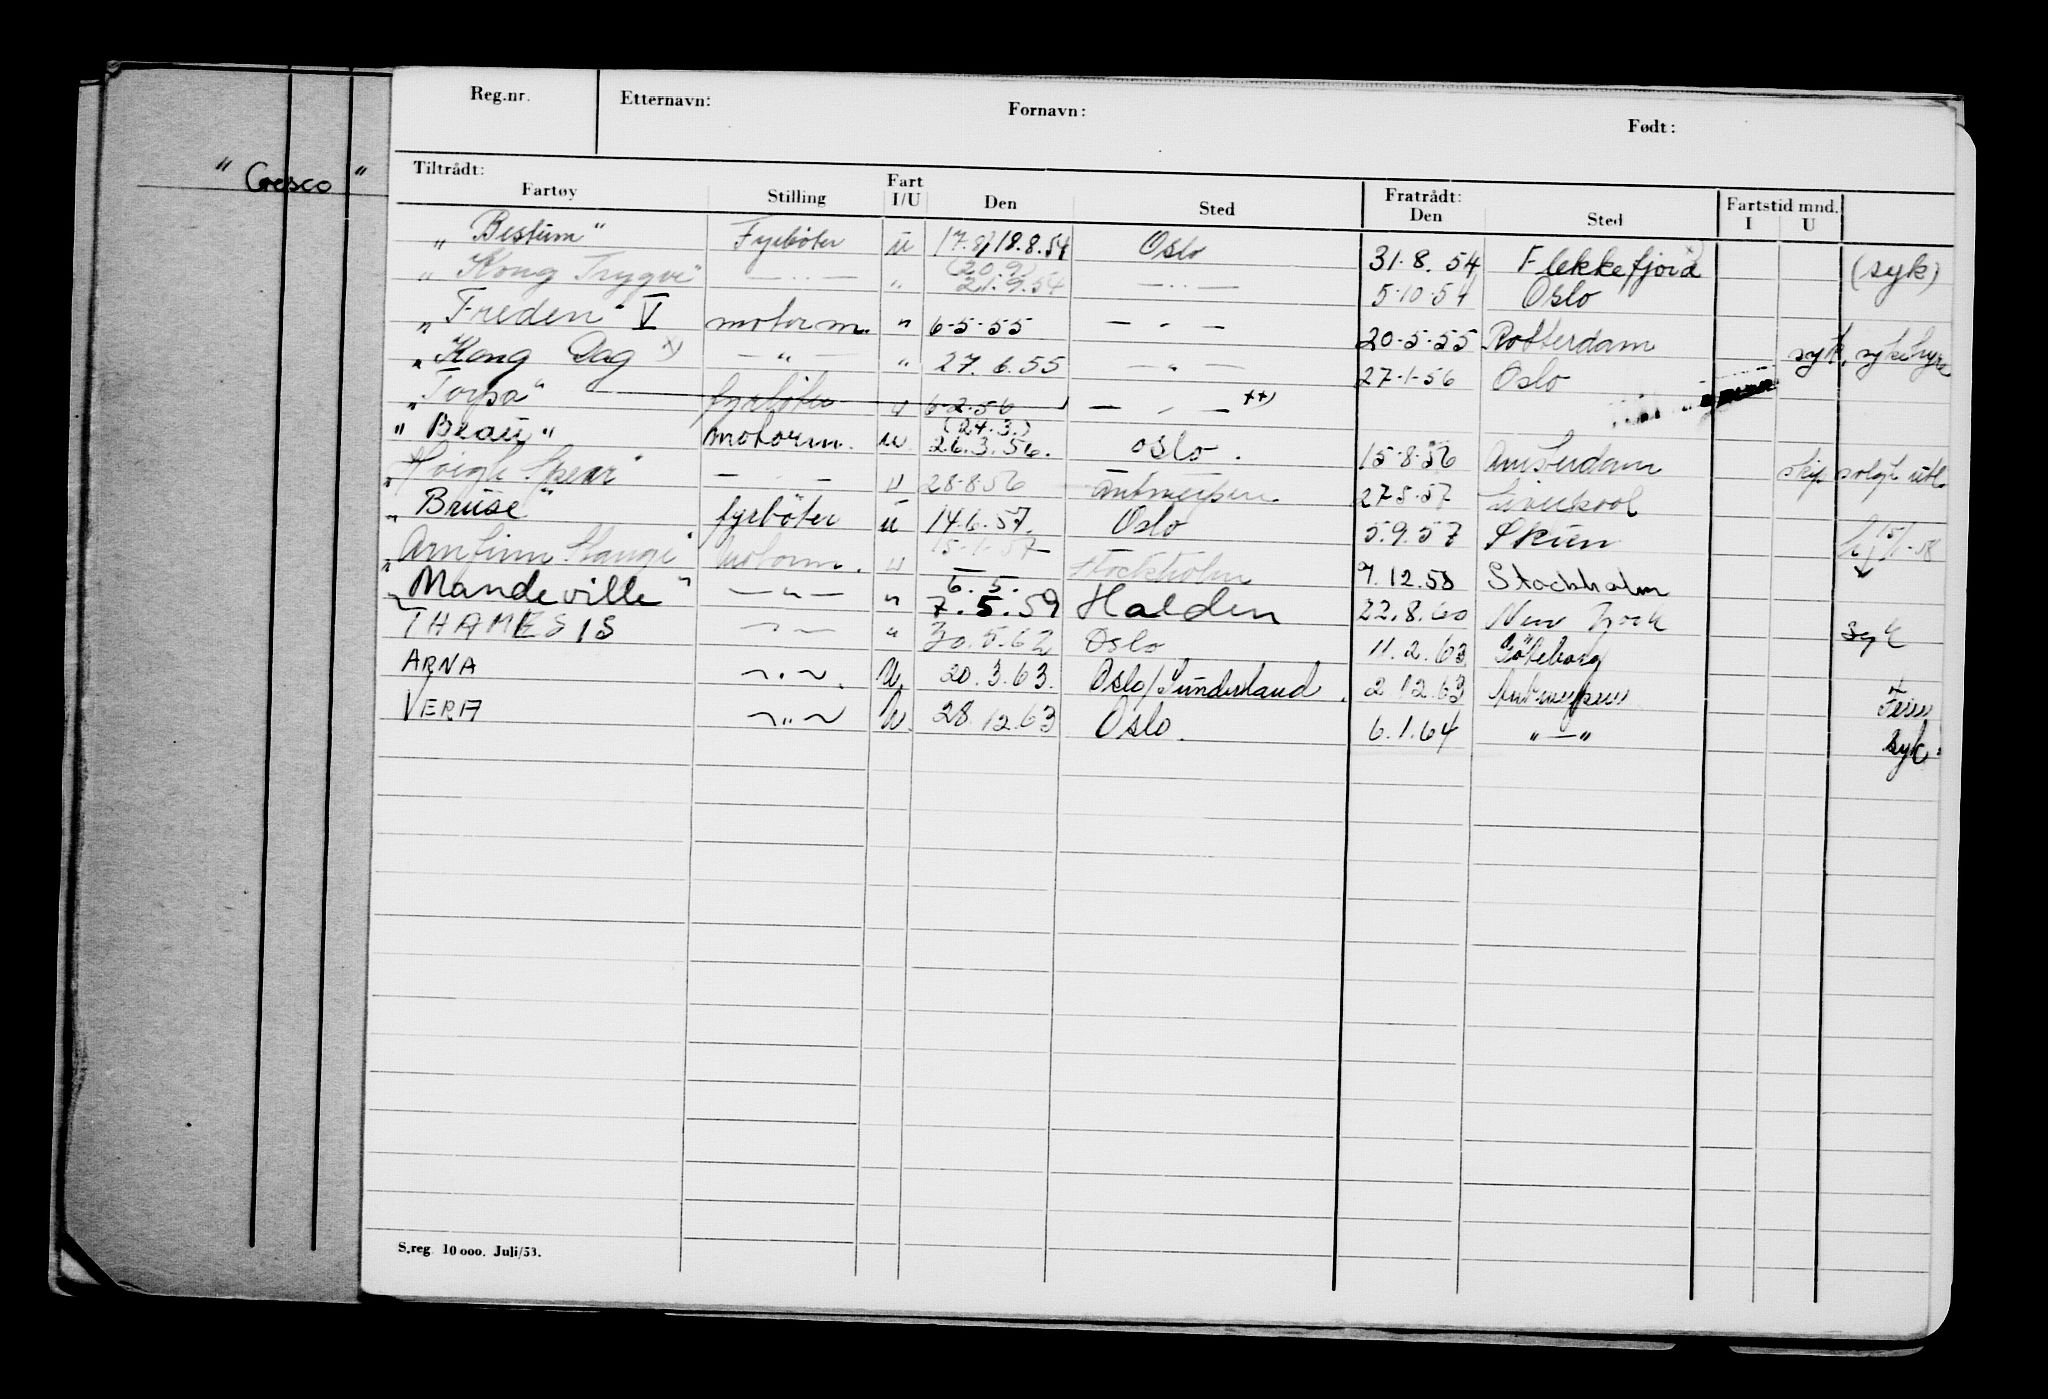 Reg.nr. Etternavn: Fornavn: Født:
" Cresco "
Tiltrådt: Fratrådt:
Fartøy Stilling Fart I/U Den Sted Den Sted Fartstid mnd. I U
„ Bestum " Fyrbøter u 17.8/18.8.54 Oslo 31.8.54 Flekkefjord x) (syk)
„ Kong Trygve " — " — " (20.9) 21.9.54 — " — 5.10.54 Oslo
„ Freden " V motorm. " 6-5-55 — " — 20-5-55 Rotterdam syk, sykehyre
„ Kong Dag x) — " — " 27.6.55 — " — 27-1-56 Oslo
„ Torpa " fyrbøter u 6-2-56 — " — xx)
" Beau " motorm. u (24.3.) 26.3.56. Oslo. 15-8-56 Amsterdam skip solgt utl.
„ Høegh Spear " — " — u 28-8-56 Antwerpen 27-5-57 Liverpool
„ Bruse " fyrbøter u 14.6.57. Oslo 5.9.57 Skien
„ Arnfinn Stange " Motorm. u Stockholm 9.12.58 Stockholm
„ Mandeville " — " — " 6.5. 7.5.59 Halden 22.8.60 New York syk
THAMESIS — " — " 30.5.62 Oslo 11.2.63 Göteborg
ARNA — " — U. 20.3.63. Oslo/Sunderland. 2.12.63 Antwerpen Ferie
VERA — " — U. 28.12.63 Oslo. 6.1.64 " — " syk.
S.reg. 10 000. Juli/53.